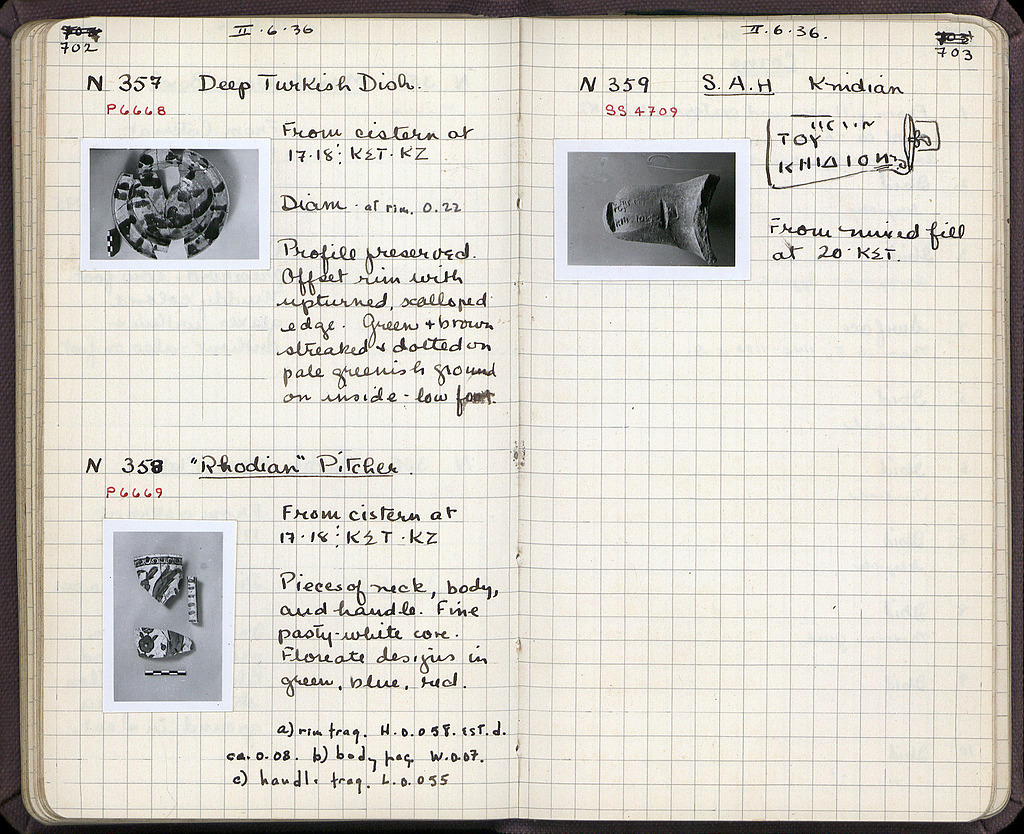 702
II · 6 · 36
N 357 Deep Turkish Dish.
P 6668
From cistern at
17·18 : ΚΣΤ·ΚΖ
Diam. at rim. 0.22
Profile preserved.
Offset rim with
upturned, scalloped
edge. Green + brown
streaked & dotted on
pale greenish ground
on inside - low
N 358 "Rhodian" Pitcher.
P 6669
From cistern at
17·18 : ΚΣΤ·ΚΖ
Pieces of neck, body,
and handle. Fine
pasty-white core.
Floreate designs in
green, blue, red.
a) rim frag. H. 0.058. est. d.
ca. 0.08. b) body frag W. 0.07.
c) handle frag. L. 0.055
II · 6 · 36.
703
N 359 S.A.H Knidian
SS 4709
ΤΟΥ
ΚΝΙΔΙΟΝ
From mixed fill
at 20·ΚΣΤ.